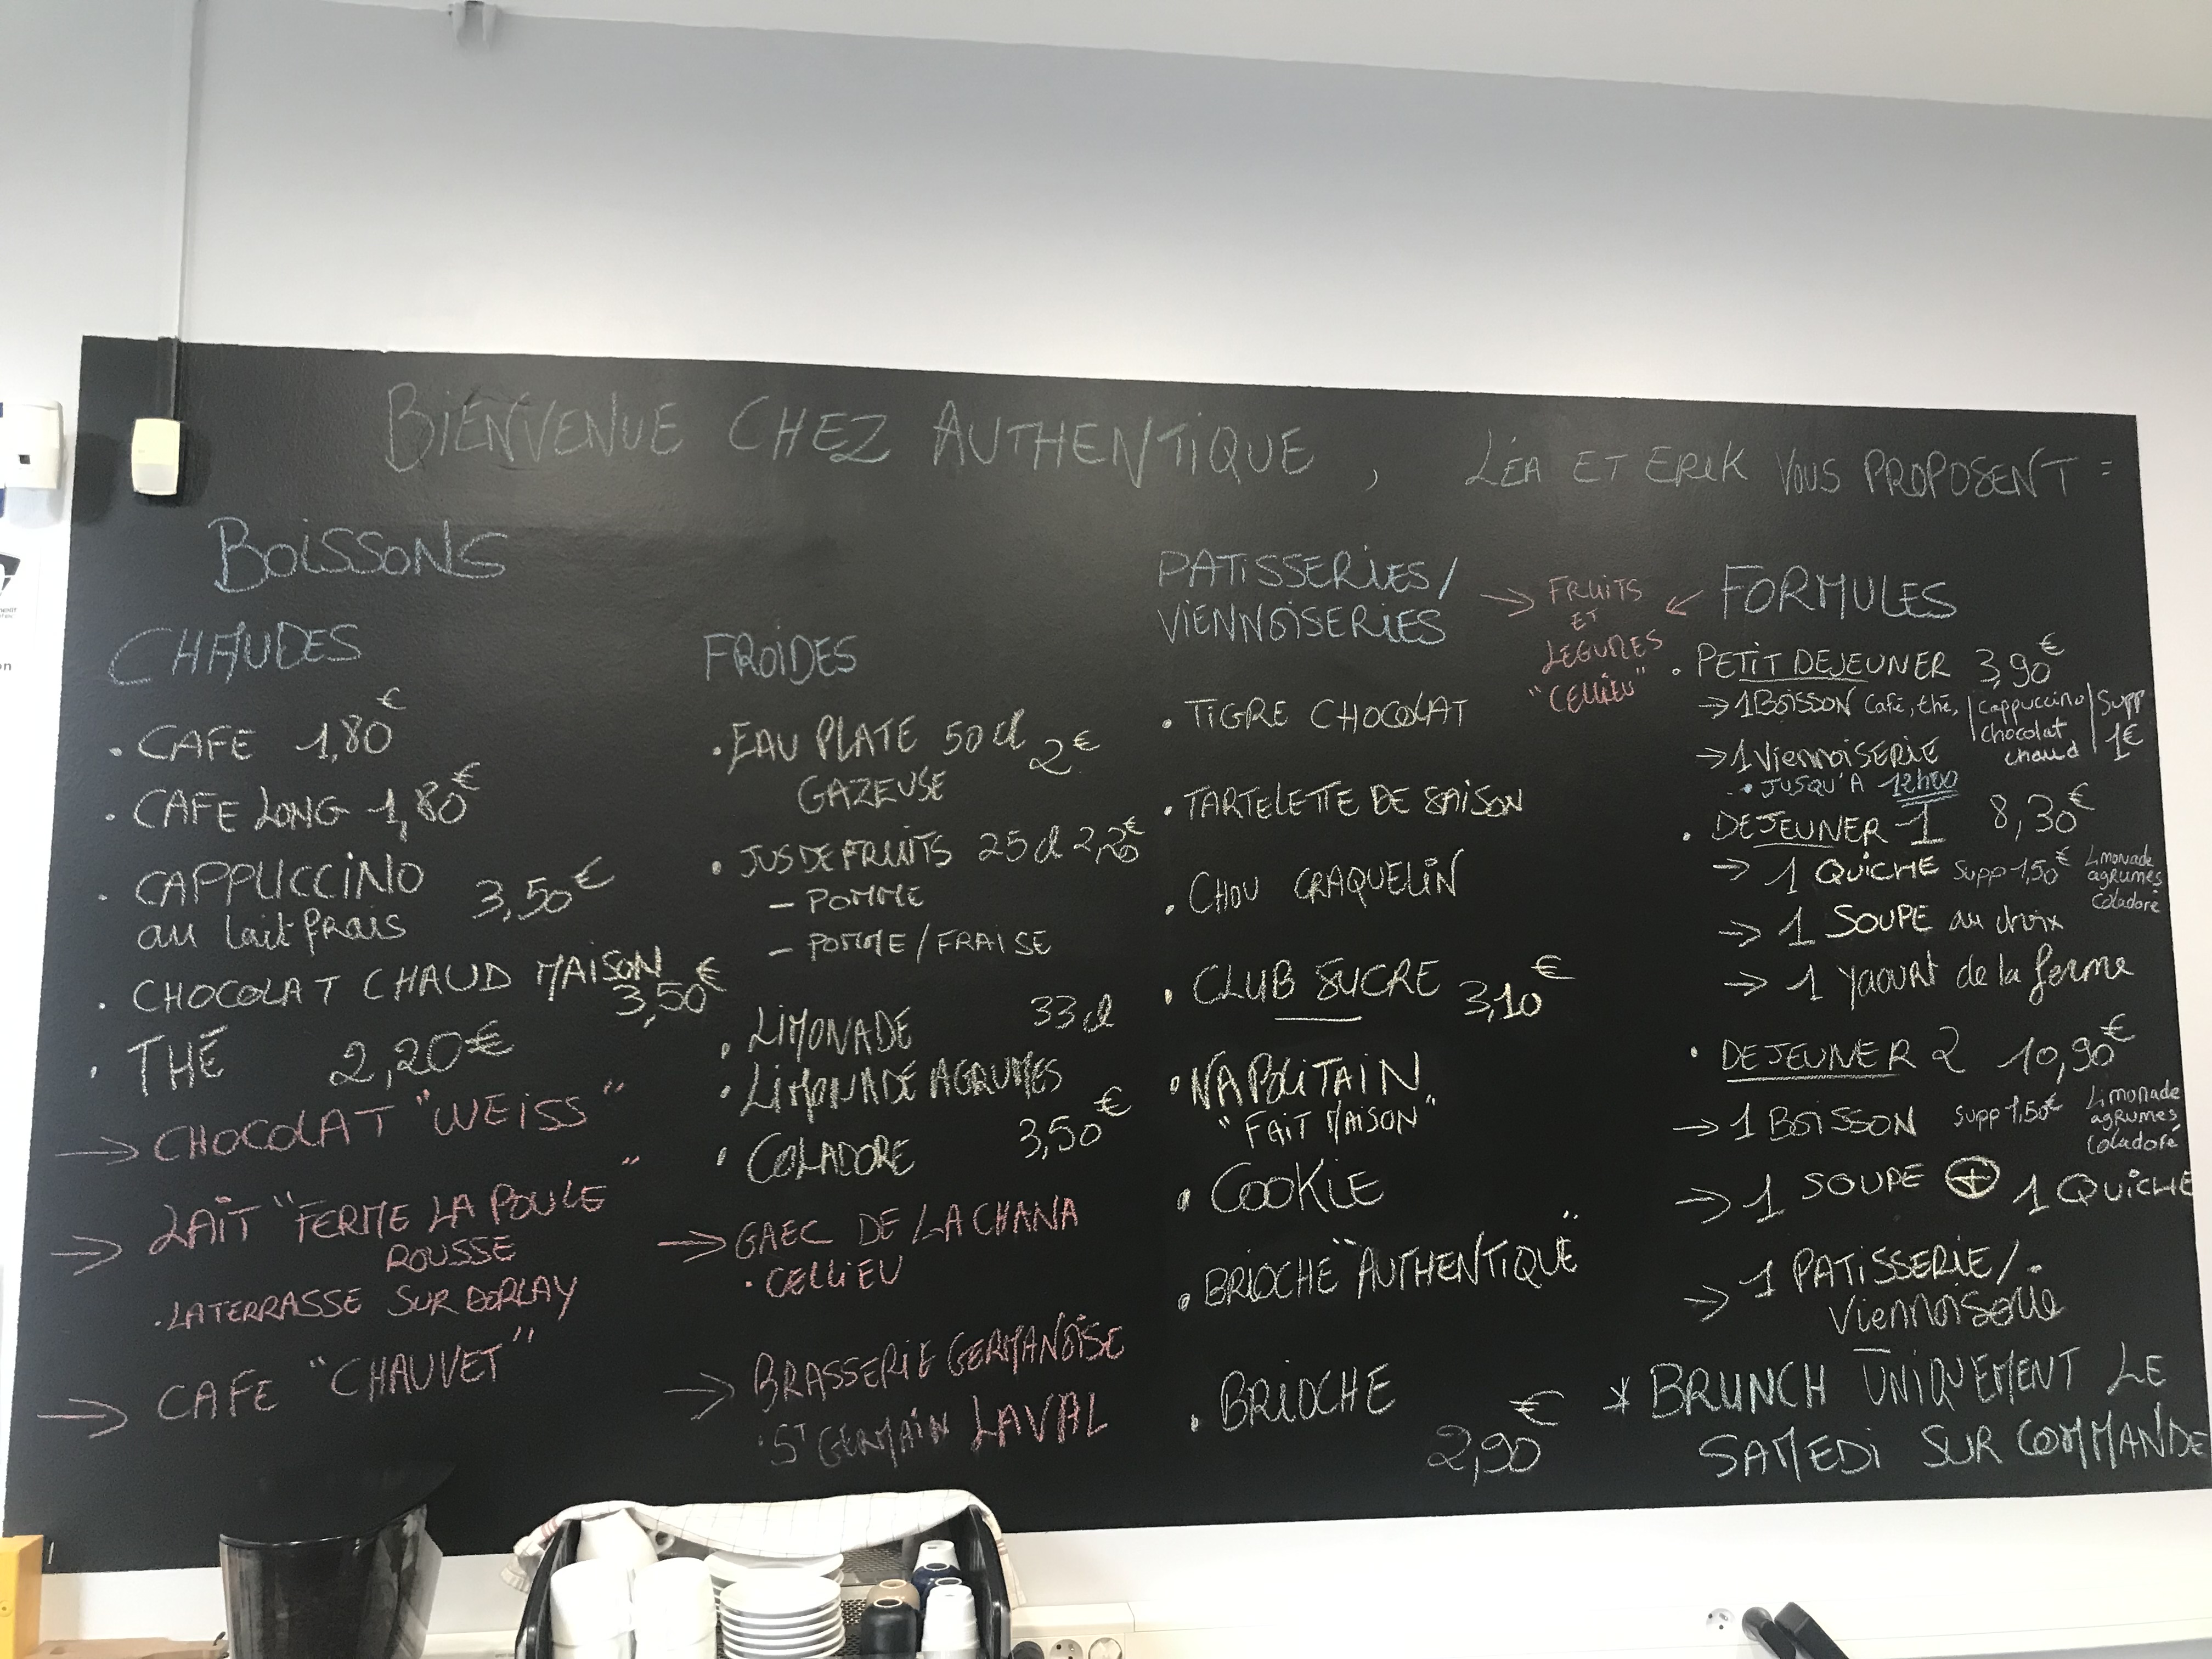 BIENVENUE CHEZ AUTHENTIQUE, LÉA ET ERIK VOUS PROPOSENT :
BOISSONS
CHAUDES
. CAFE 1,80€
. CAFE LONG 1,80€
. CAPPUCCINO 3,50€
au lait frais
. CHOCOLAT CHAUD MAISON
3,50€
. THÉ 2,20€
→ CHOCOLAT "WEISS"
→ LAIT "FERME LA POULE
ROUSSE"
. LA TERRASSE SUR DORLAY
→ CAFE "CHAUVET"
FROIDES
. EAU PLATE 50 cl 2€
GAZEUSE
. JUS DE FRUITS 25 cl 2,20€
- POMME
- POMME/FRAISE
. LIMONADE 33 cl
. LIMONADE AGRUMES
. COLADORE 3,50€
→ GAEC DE LA CHANA
. CELLIEU
→ BRASSERIE GERMANOISE
. ST GERMAIN LAVAL
PATISSERIES/
VIENNOISERIES
→ FRUITS ←
ET
LEGUMES
"CELLIEU"
. TIGRE CHOCOLAT
. TARTELETTE DE SAISON
. CHOU CRAQUELIN
. CLUB SUCRE 3,10€
. NAPOLITAIN
"FAIT MAISON"
. COOKIE
. BRIOCHE "AUTHENTIQUE"
. BRIOCHE
2,90€
FORMULES
. PETIT DEJEUNER 3,90€
→ 1 BOISSON Café, thé, | Cappuccino | Supp
chocolat 1€
chaud
→ 1 ViennoiSERIE
. JUSQU'A 12h00
. DEJEUNER 1 8,30€
→ 1 QUICHE Supp 1,50€ Limonade
agrumes
Coladore
→ 1 SOUPE au choix
→ 1 yaourt de la ferme
. DEJEUNER 2 10,90€
→ 1 BOISSON Supp 1,50€ Limonade
agrumes
Coladore
→ 1 SOUPE + 1 QUICHE
→ 1 PATISSERIE/
Viennoiserie
* BRUNCH UNIQUEMENT LE
SAMEDI SUR COMMANDE